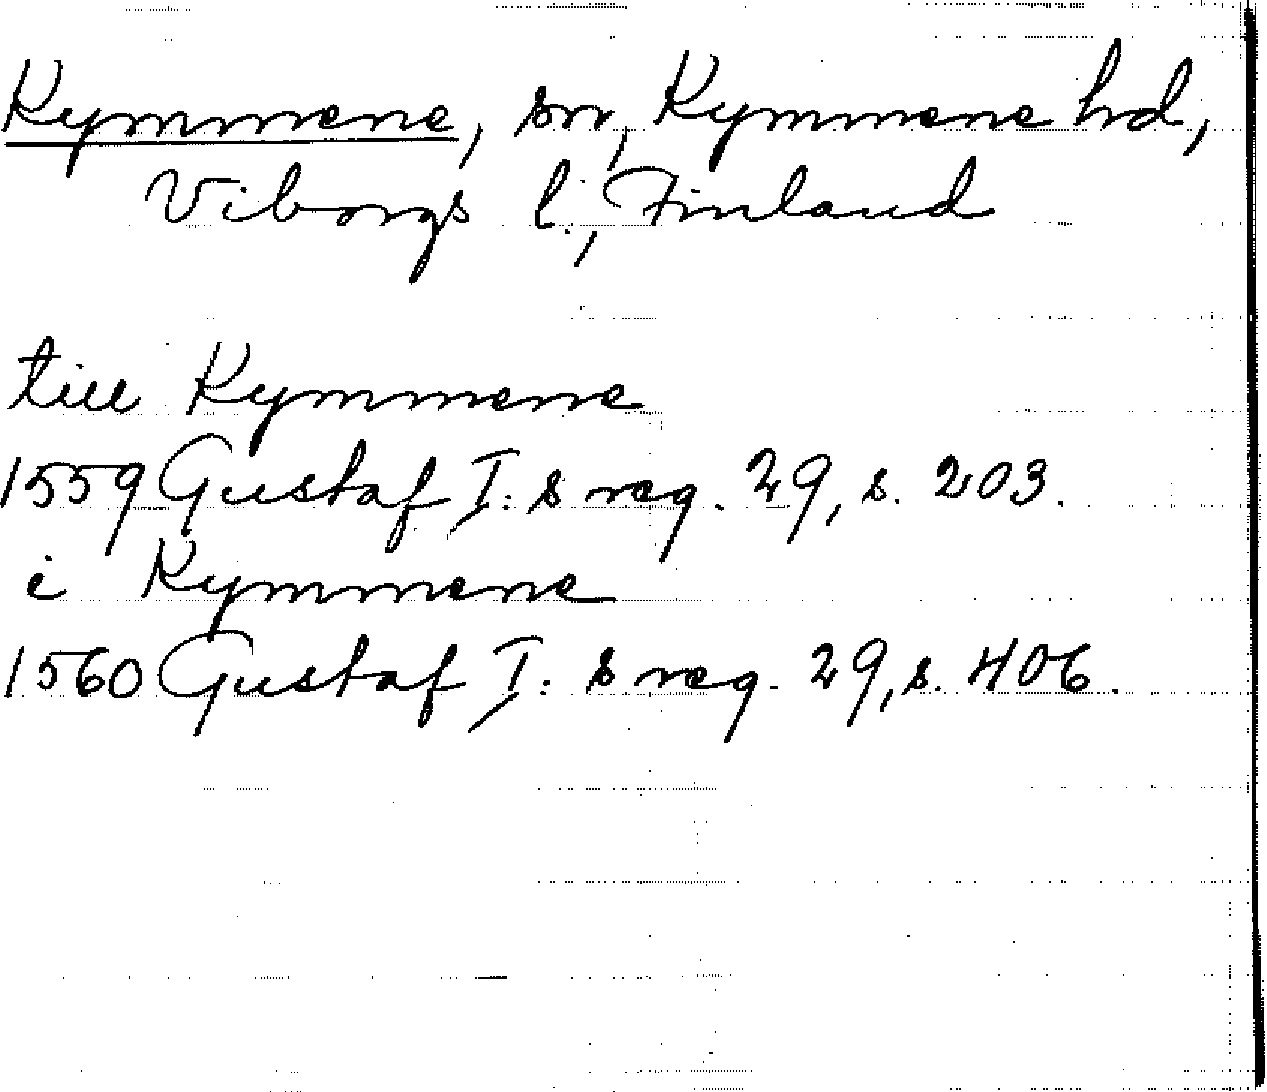 Kymmene, sn, Kymmene hd,
Viborgs l., Finland
till Kymmene
1559 Gustaf I:s reg. 29, s. 203.
i Kymmene
1560 Gustaf I:s reg. 29, s. 406.